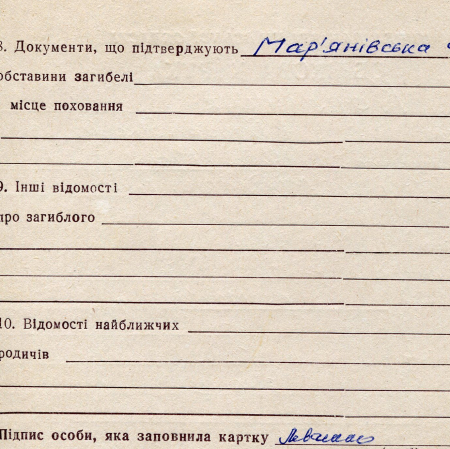 8. Документи, що підтверджують Мар'янівська
обставини загибелі
місце поховання
9. Інші відомості
про загиблого
10. Відомості найближчих
родичів
Підпис особи, яка заповнила картку